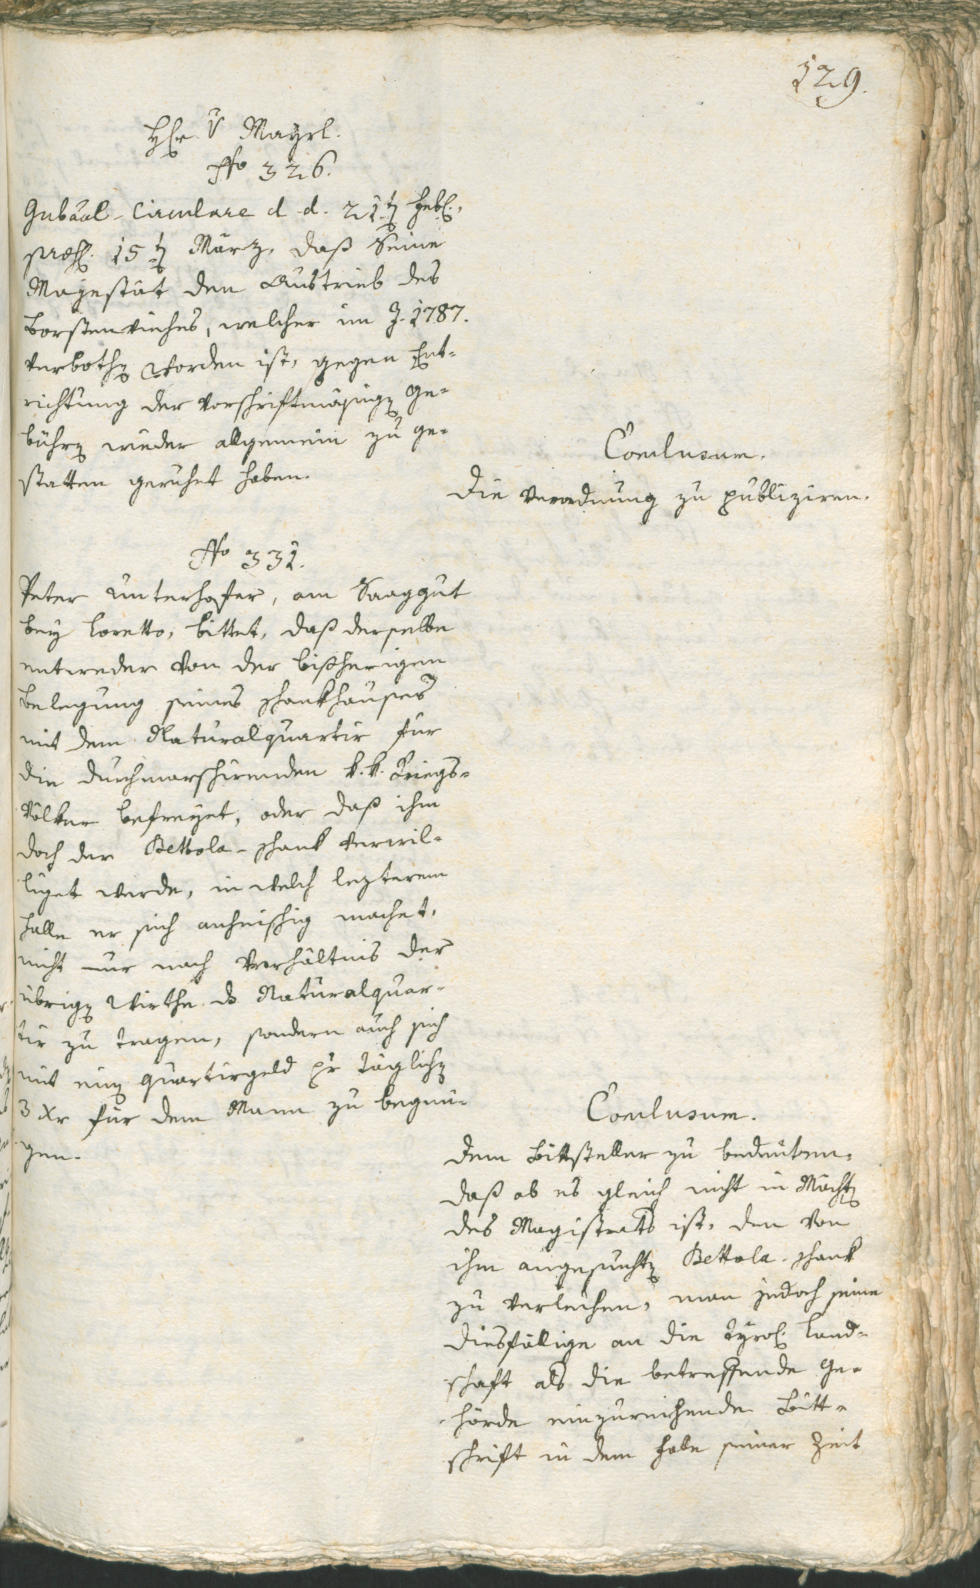 129.
H̅r̅. v Mayrl.
No 326.
Gubāal-Circulare d d. 21t Hebl.,
praes. 15t März, daß Seine
Majestät den Austrieb des
Borstenviehes, welcher im J. 1787.
verbothen worden ist, gegen Ent-
richtung der vorschriftmäsigen Ge-
bühren wieder allgemein zu ge-
statten geruhet haben.
Conclusum.
Die Verordnung zu publiziren.
No 331.
Peter Unterhofer, am Saaggut
bey Loretto, bittet, daß derselbe
entweder von der bißherigen
Belegung seines Schankhauses
mit dem Naturalquartir für
die durchmarschirenden k. k. Kriegs-
völker befreyet, oder daß ihm
doch der Bettola-schank verwil-
liget werde, in welch lezterem
Falle er sich anheischig machet,
nicht nur nach Verhältnis der
übrigen Wirthe ds Naturalquar-
tir zu tragen, sondern auch sich
mit einen Quartirgeld pr täglichen
3 Xr für dem Mann zu begnü-
gen.
Conclusum.
Dem Bittsteller zu bedeuten,
daß ob es gleich nicht in Machten
des Magistrats ist, den von
ihm angesuchten Bettola-schank
zu verleihen, man jedoch seine
diesfällige an die Tyrol. Land-
schaft als die betreffende Ge-
hörde einzureichende Bitt-
schrift in dem Falle seiner Zeit